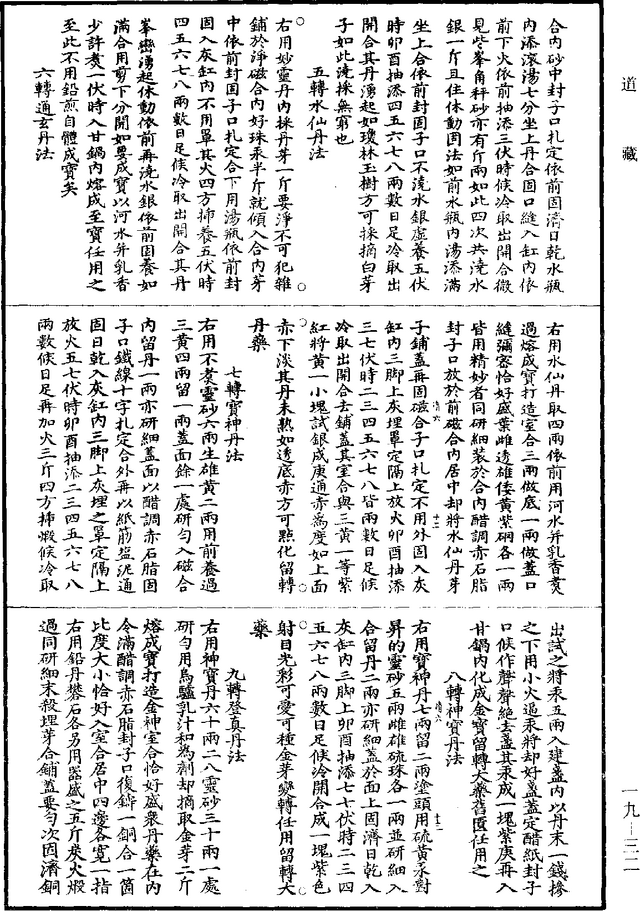 道藏
合內砂中封子口扎定依前固濟日乾水瓶
內添滾湯七分坐上丹合固口縫入缸內依
前下火依前抽添三伏時候冷取出開合微
見些峯角秤砂亦有斤兩如此四次共澆水
銀一斤且住休動固法如前水瓶內湯添滿
坐上合依前封固子口不澆水銀虛養五伏
時卯酉抽添四五六七八兩數日足冷取出
開合其丹湧起如瓊林玉樹方可採摘白芽
子如此澆採無窮也
五轉水仙丹法
右用妙靈丹內採丹芽一斤要淨不可犯雜
鋪於淨磁合內好珠汞半斤就傾入合內芽
中依前封固子口扎定合下用湯瓶依前封
固入灰缸內不用罩其火四方揷養五伏時
四五六七八兩數日足候冷取出開合其丹
峯巒湧起休動依前再澆水銀依前固養如
滿合用剪下分開如要成寶以河水并乳香
少許煑一伏時入甘鍋內熔成至寶任用之
至此不用鉛煎自體成寶矣
六轉通玄丹法
右用水仙丹取四兩依前用河水并乳香煑
過熔成寶打造室合三兩做底一兩做蓋口
縫彌密恰好盛葉雌透雄倭黃紫硇各一兩
皆用精妙者同研細裝於合內醋調赤石脂
封子口放於前磁合內居中却將水仙丹芽
子鋪蓋再固磁合子口扎定不用外固入灰
缸內三脚上灰埋罩定隔上放火卯酉抽添
三七伏時二三四五六七八皆兩數日足候
冷取出開合去鋪蓋其室合與三黃一等紫
紅將黃一小塊試銀成庚通赤爲度如上面
赤下淡其丹未熟如透底赤方可點化留轉
丹藥
七轉寶神丹法
右用不煑靈砂六兩生雄黃二兩用前養過
三黃四兩留一兩蓋面餘一處研勻入磁合
內留丹一兩亦研細蓋面以醋調赤石脂固
子口鐵線十字扎定合外再以紙筋塩泥通
固日乾入灰缸內三脚上灰埋之罩定隔上
放火五七伏時卯酉抽添二三四五六七八
兩數候日足再加火三斤四方揷煅候冷取
出試之將汞五兩入建盞內以丹末一錢摻
之下用小火逼汞將却好盞蓋定醋紙封子
口候作聲聲絕去盞其汞成一塊紫庚再入
甘鍋內化成金寶留轉大藥舊匱任用之
八轉神寶丹法
右用寶神丹七兩留二兩塗頭用硫黃汞對
昇的靈砂五兩雌雄硫珠各一兩並研細入
合留丹二兩亦研細蓋於面上固濟日乾入
灰缸內三脚上卯酉抽添七七伏時二三四
五六七八兩數日足候冷開合成一塊紫色
射目光彩可愛可種金芽變轉任用留轉大
藥
九轉登真丹法
右用神寶丹六十兩二八靈砂三十兩一處
研勻用烏驢乳汁和為劑却摘取金芽二斤
熔成寶打造金神室合恰好盛衆丹藥在內
令滿醋調赤石脂封子口復鑄一銅合一箇
比度大小恰好入室合居中四邊各寬一指
右用鉛丹礬石各另用器盛之五斤炭火煅
過同研細末殺埋芽合鋪蓋要勻次固濟銅
一九-三一二